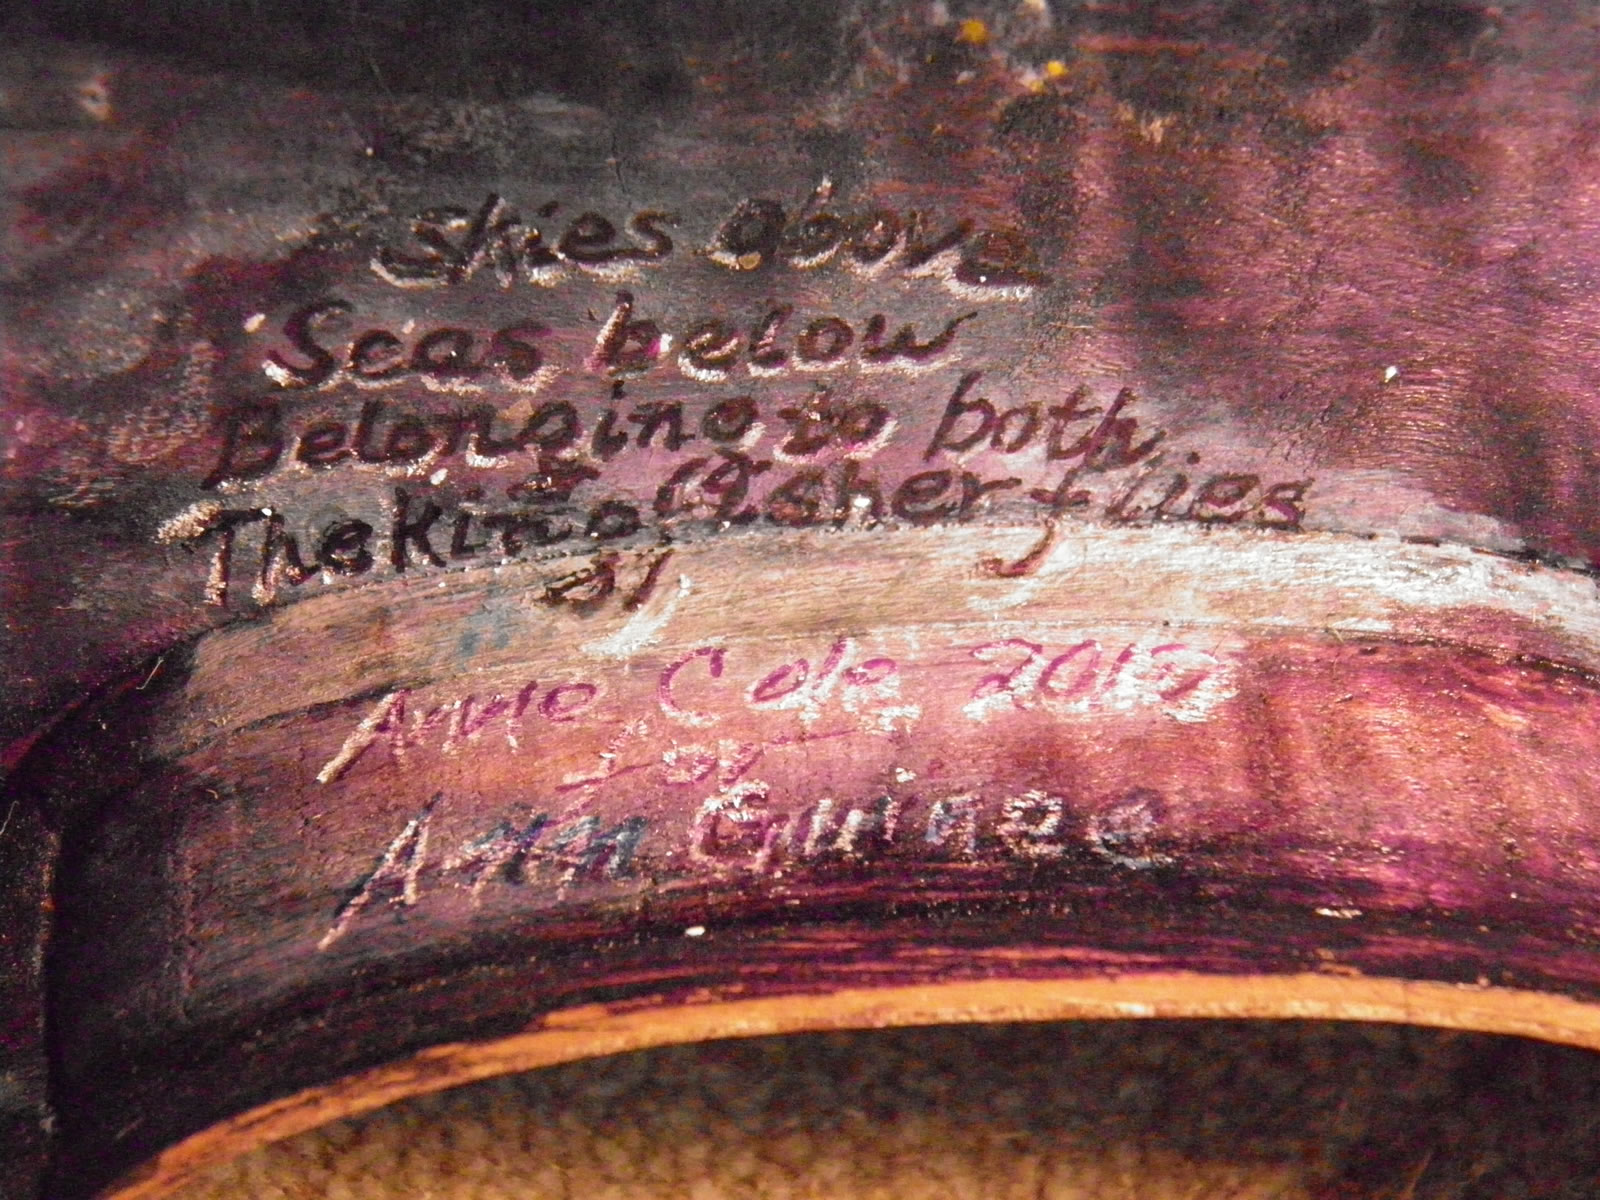 Skies above
Seas below
Belonging to both
The Kingfisher flies
Anne Cole
for
Ann